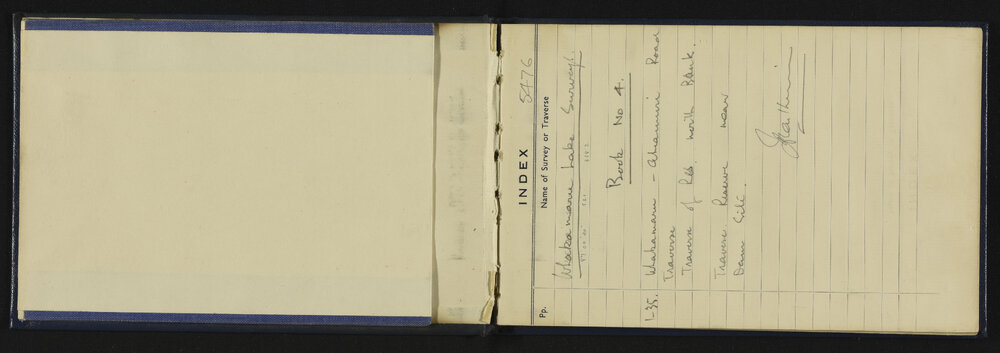 5476
INDEX
Pp. Name of Survey or Traverse
Whakamaru Lake Survey.
Book No 4.
1-35. Whakamaru - Atiamuri Road
Traverse
Traverse of Res. North Bank.
Traverse Reserve near
Dam Site.